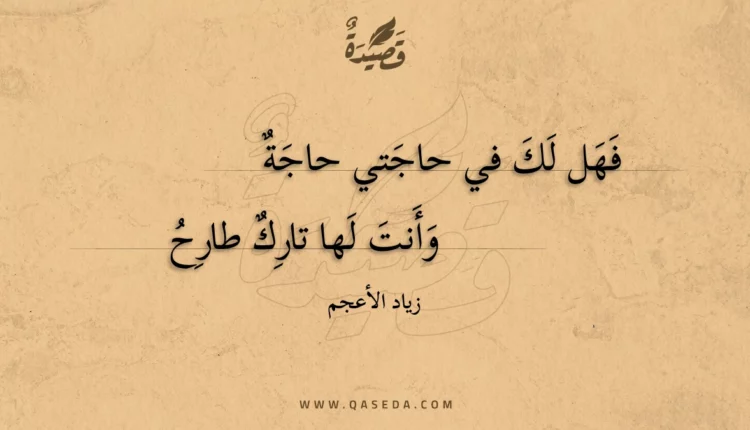 قَصِيْدَةٌ
فَهَل لَكَ في حاجَتي حاجَةٌ
وَأَنتَ لَها تارِكٌ طارِحُ
زياد الأعجم
WWW.QASEDA.COM